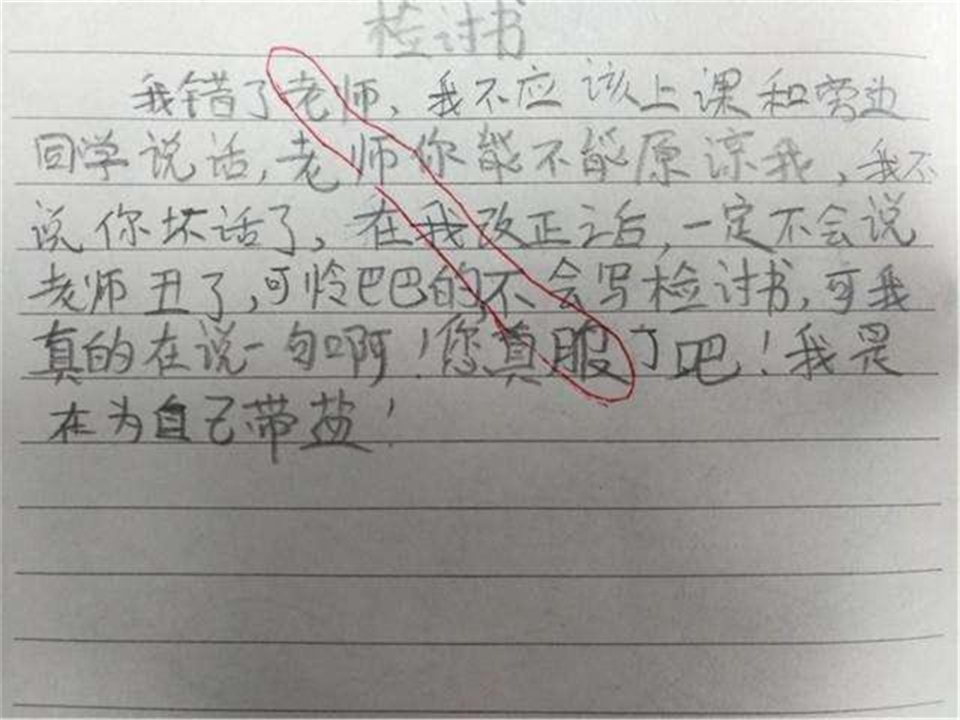 检讨书
我错了老师、我不应该上课和旁边
同学说话,老师你能不能原谅我、我不
说你坏话了,在我改正之后,一定不会说
老师丑了,可怜巴巴的不会写检讨书,可我
真的在说一句啊!您真服了吧!我是
在为自己带盐!